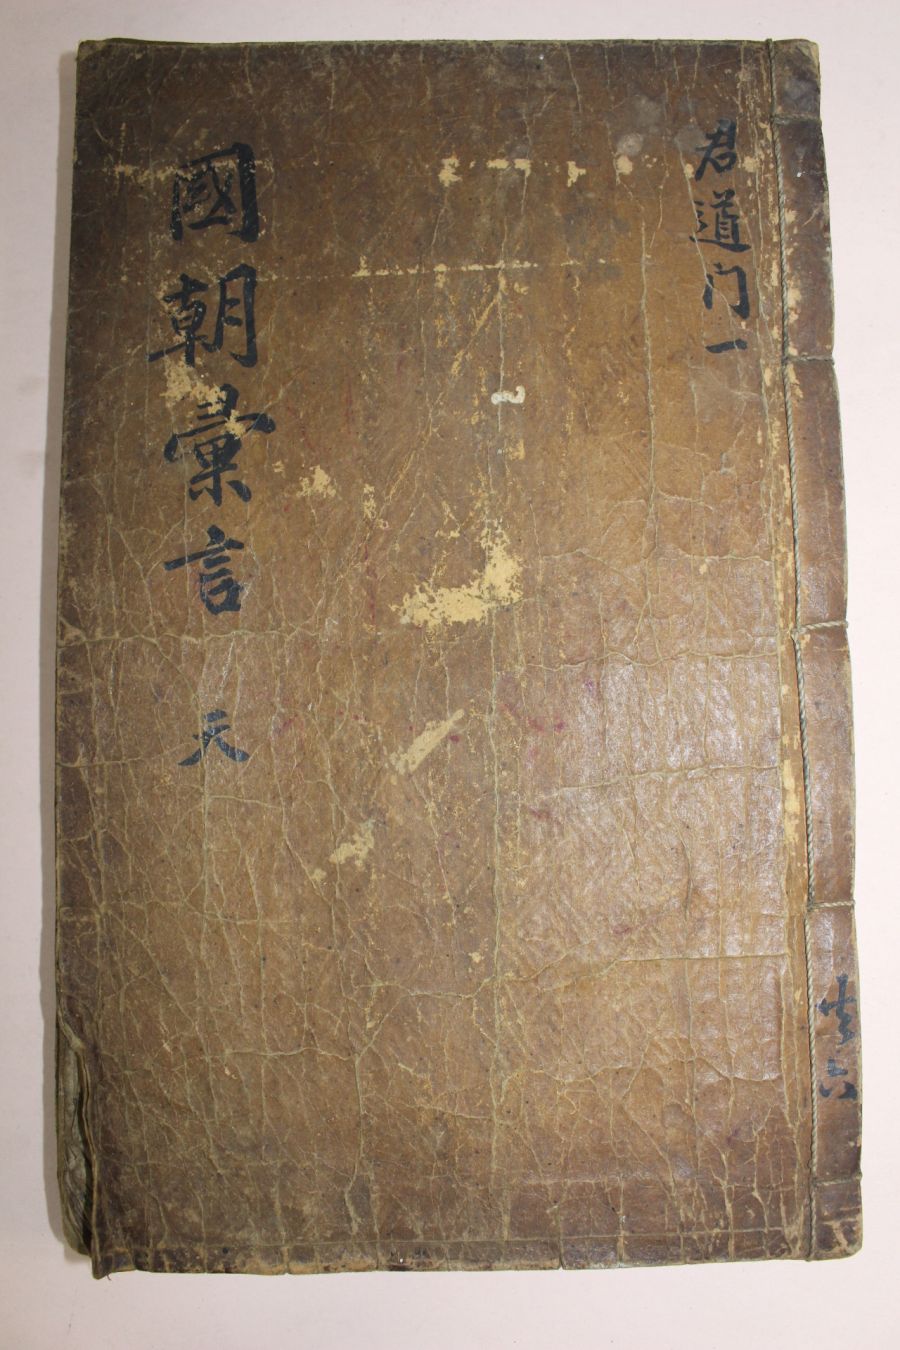 共六
君道门一
國朝彙言 天